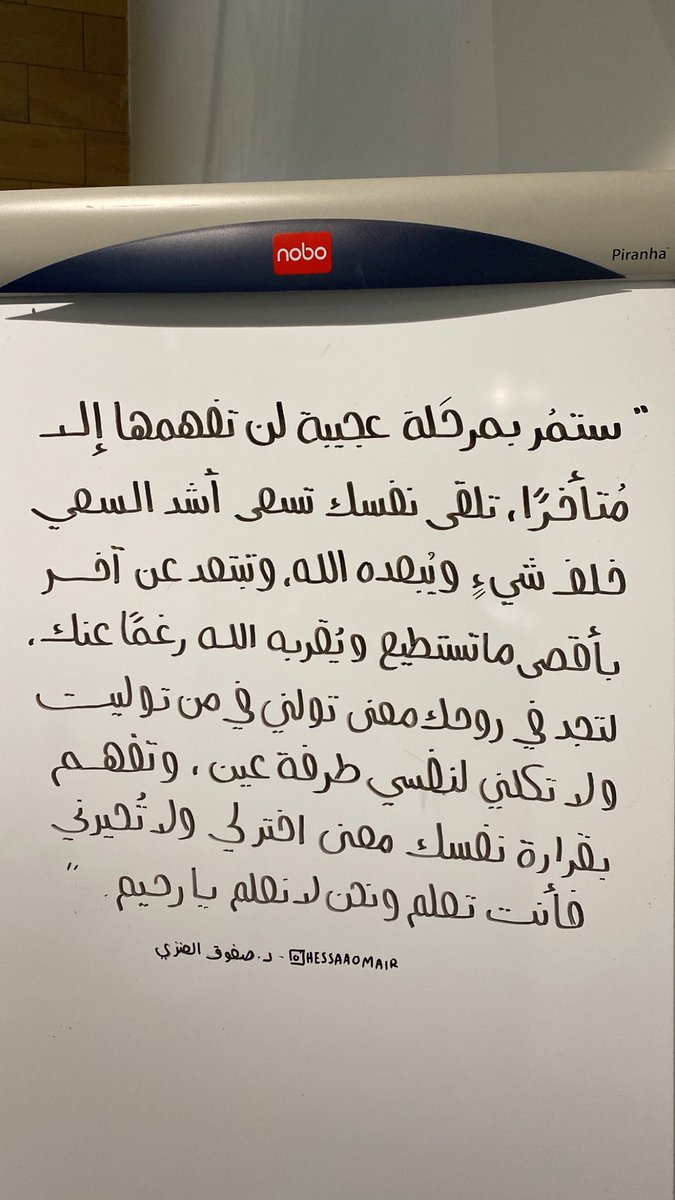 nobo
Piranha
"ستمُر بمرحَلة عجيبة لن تفهمها إلا
مُتأخرًا، تلقى نفسك تسعى أشد السعي
خلف شيءٍ ويُبعده الله، وتبتعد عن آخر
بأقصى ماتستطيع ويُقربه الله رغمًا عنك،
لتجد في روحك معنى تولني في من توليت
ولا تكلني لنفسي طرفة عين، وتفهم
بقرارة نفسك معنى اختر لي ولا تُحيرني
فأنت تعلم ونحن لا نعلم يا رحيم."
د. صفوق العنزي - @HESSAAOMAIR